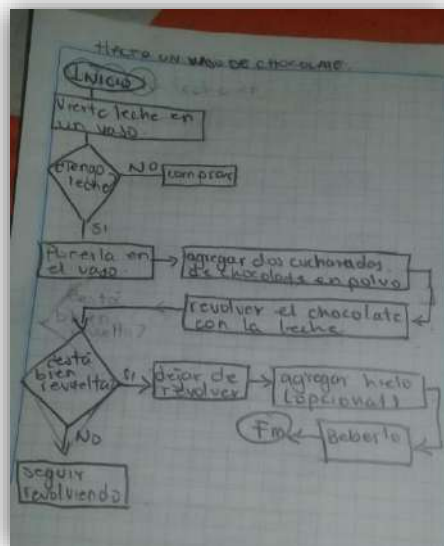 HAGO UN VASO DE CHOCOLATE.
INICIO
Vierto leche en
un vaso.
¿Tengo
leche?
NO
comprar
SI
Ponerla en
el vaso.
agregar dos cucharadas
de chocolate en polvo
revolver el chocolate
con la leche
¿está
bien
revuelta?
SI
dejar de
revolver
agregar hielo
(opcional)
Fin
Beberlo
NO
seguir
revolviendo